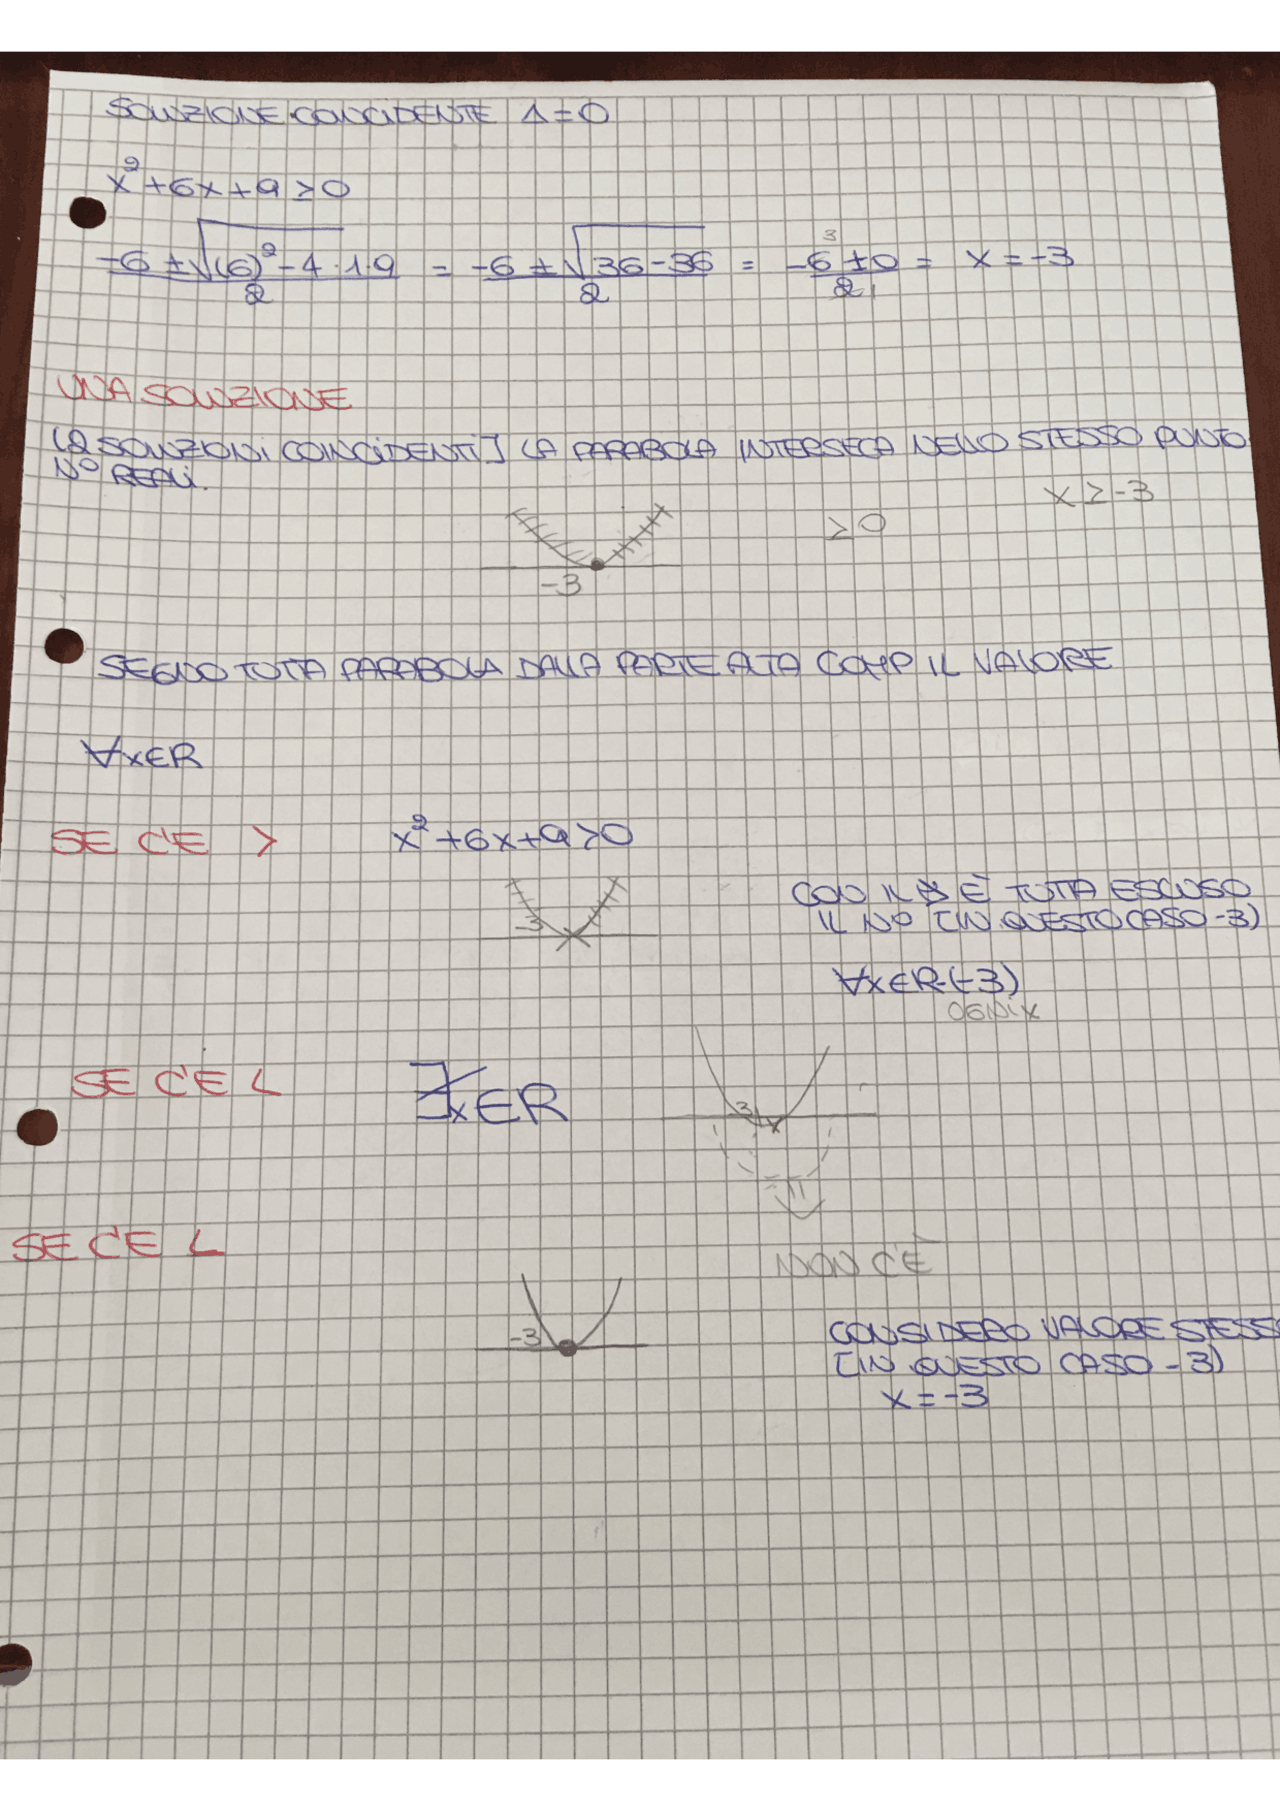 SOLUZIONE COINCIDENTE Δ=0
x²+6x+9≥0
-6±√(6)²-4·1·9 / 2 = -6±√36-36 / 2 = -6±0 / 2 = x=-3
3
1
UNA SOLUZIONE
(2 SOLUZIONI COINCIDENTI] LA PARABOLA INTERSECA NELLO STESSO PUNTO
Nº REALI.
x≥-3
≥0
-3
SEGNO TUTTA PARABOLA DALLA PARTE ALTA COMP IL VALORE
∀x∈R
SE C'E > x²+6x+9>0
CON IL È TUTTA ESCLUSO
-3
IL Nº [IN QUESTO CASO -3)
∀x∈R-(-3)
OGNI X
SE C'E < ∄x∈R
3
SE C'E <
NON C'È
-3
CONSIDERO VALORE STESSO
[IN QUESTO CASO -3)
x=-3